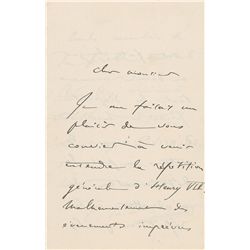 cher monsieur
Je me faisais un
plaisir de vous
convier à venir
entendre la répétition
générale d'Henry VIII.
Malheureusement des
évènements imprévus